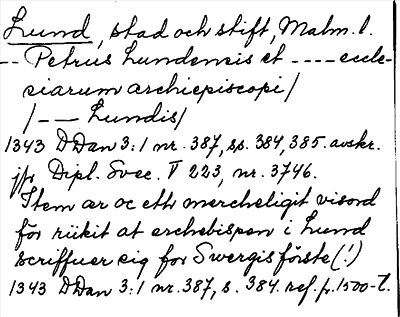 Lund, stad och stift, Malm. l.
-- Petrus Lundensis et ---- eccle-
siarum archiepiscopi/
/-- Lundis/
1343 DDan 3:1 nr. 387, ss. 384, 385. avskr.
jfr Dipl. Svec. V 223, nr. 3746.
Item ær oc eth mercheligit visord
för riikit at erchebispen i Lund
scriffuer sig for Swergis förste (!)
1343 DDan 3:1 nr. 387, s. 384. ref. fr. 1500-t.